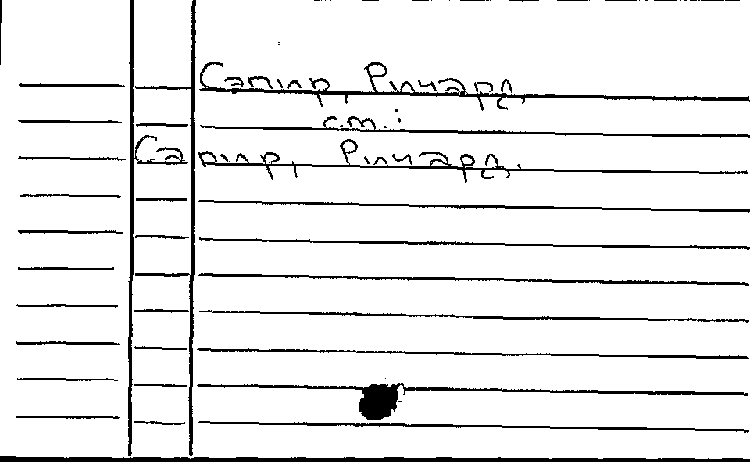 Сапир, Ричард.
см.:
Сапир, Ричард.